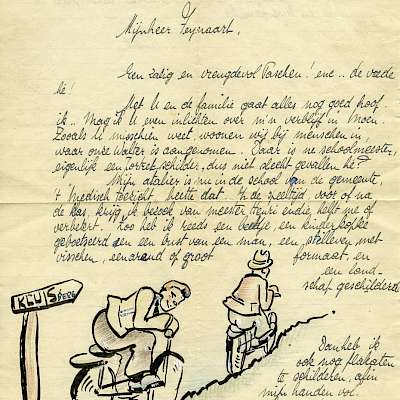 Mijnheer Zeynaart,
Een zalig en vreugdevol Paschen! enz.. de vrede
hé!
Met U en de familie gaat alles nog goed hoop
ik.. Mag ik U even inlichten over m'n verblijf in Moen.
Zooals U misschien weet, woonen wij bij menschen in,
waar onze Walter is aangenomen. Daar is ne schoolmeester,
eigenlijk een schilder, dus niet slecht gevallen hé?
Mijn atelier is nu in de school van de gemeente,
't Medisch toezicht, heette dat. In de speeltijd, voor of na
de klas, krijg ik bezoek van meester Henri en die helpt me of
verbetert. Zoo heb ik reeds een beeldje, een kinderkopke
geboetseerd en een bust van een man, een stilleven met
visschen, een arend of groot formaat, en
een land-
schap geschilderd
KLUIS
BERG
Dan heb ik
ook nog plakaten
te schilderen, afin
mijn handen vol.